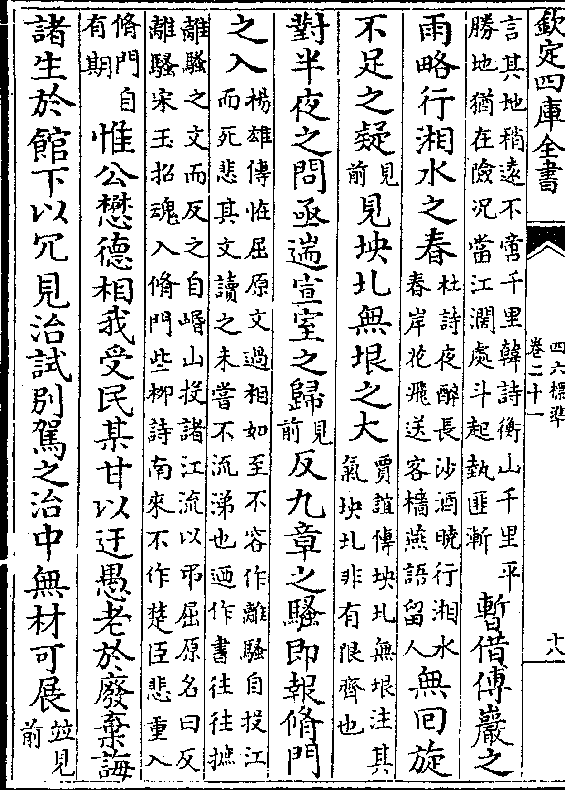 欽定四庫全書
四六標準
卷二十一
十八
言其地稍遠不啻千里韓詩衡山千里平
勝地猶在險況當江濶處斗起埶匪漸
暫借傅巖之
雨略行湘水之春
杜詩夜醉長沙酒曉行湘水
春岸花飛送客檣燕語留人
無回旋
不足之疑
見
前
見坱圠無垠之大
賈誼傳坱圠無垠注其
氣坱圠非有限齊也
對半夜之問亟遄宣室之歸
見
前
反九章之騷即報脩門
之入
楊雄傳怪屈原文過相如至不容作離騷自投江
而死悲其文讀之未嘗不流涕也迺作書往往摭
離騷之文而反之自㟭山投諸江流以弔屈原名曰反
離騷宋玉招魂入脩門些柳詩南來不作楚臣悲重入
脩門自
有期
惟公懋德相我受民某甘以迂愚老於廢棄誨
諸生於館下以冗見治試别駕之治中無材可展
竝見
前